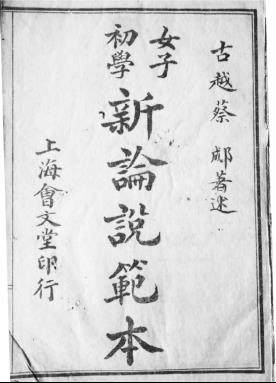 古越蔡郕著述
女子
初學
新論說範本
上海會文堂印行